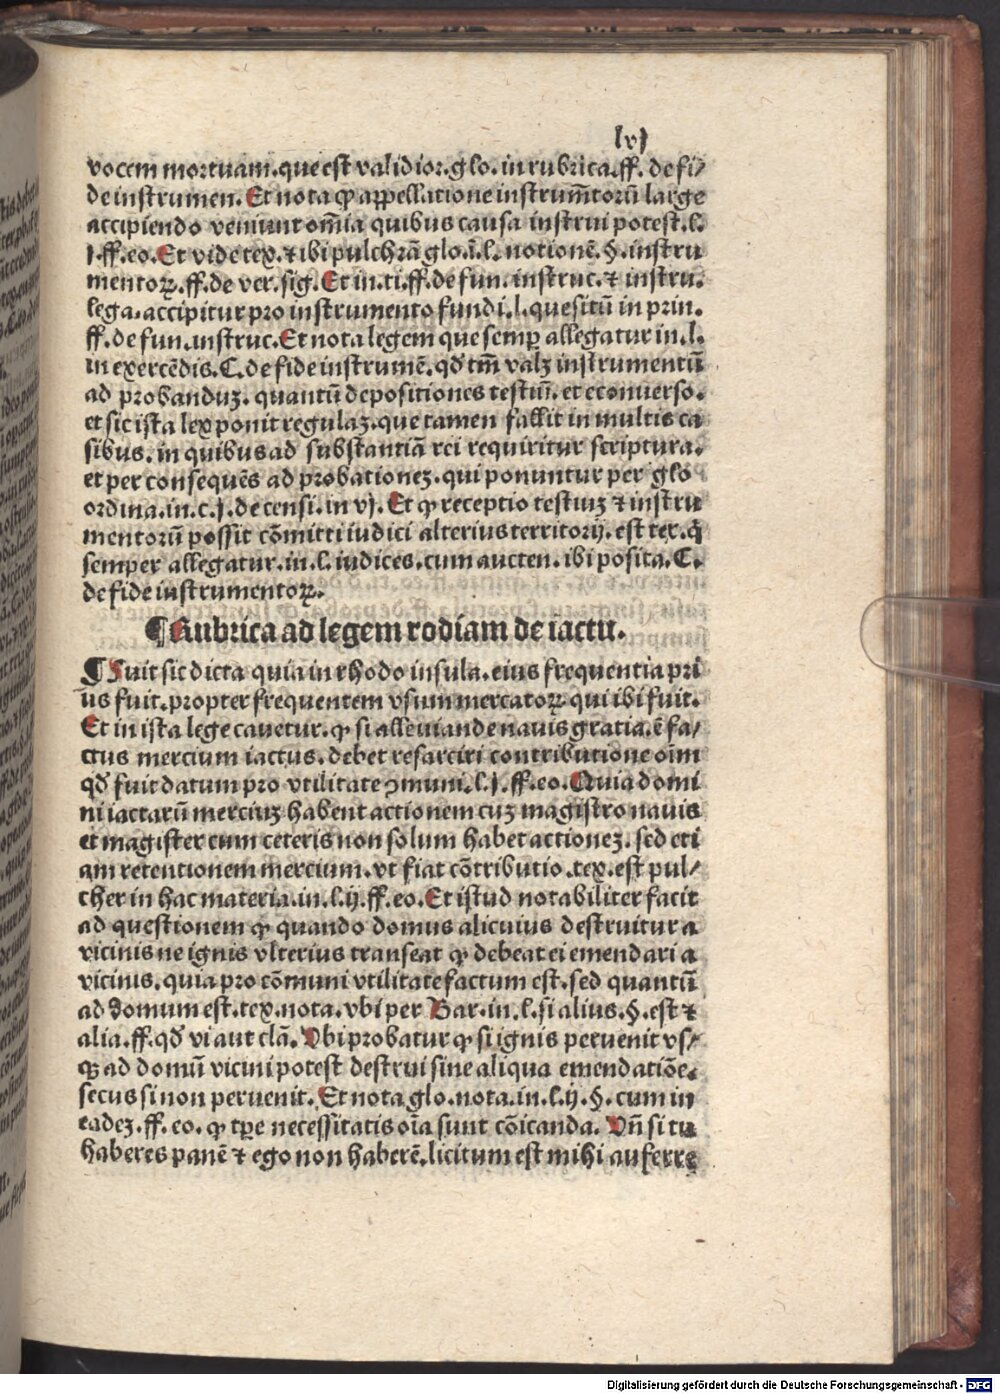 lvj
vocem mortuam.que est validior.glo.in rubrica.ff. de fi/
de instrumen. Et nota ꝙ appellatione instrumētorū large
accipiendo veniunt omīa quibus causa instrui potest.l.
j.ff.eo.Et vide tex.⁊ ibi pulchrā glo.ī.l. notionē.§.instru
mentoꝝ.ff.de ver.sig.Et in.ti.ff.de fun. instruc.⁊ instru.
lega.accipitur pro instrumento fundi.l.quesitū in prin.
ff.de fun.instruc.Et nota legem que semꝑ allegatur in.l.
in exercēdis.C.de fide instrumē.qd̄ tm̄ valꝫ instrumentū
ad probanduꝫ.quantū depositiones testiū.et econuerso.
et sic ista lex ponit regulaꝫ.que tamen fallit in multis ca
sibus.in quibus ad substantiā rei requiritur scriptura.
et per consequēs ad probationeꝫ.qui ponuntur per glo
ordina.in.c.j.de censi.in vj.Et ꝙ receptio testiuꝫ ⁊ instru
mentorū possit cōmitti iudici alterius territorij.est tex.q̄
semper allegatur.in.l.iudices.cum aucten.ibi posita.C.
de fide instrumentoꝝ.
¶Rubrica ad legem rodiam de iactu.
¶Fuit sic dicta quia in rhodo insula.eius frequentia pri
us fuit.propter frequentem vsum mercatoꝝ qui ibi fuit.
Et in ista lege cauetur.ꝙ si alleuiande nauis gratia.ē fa/
ctus mercium iactus.debet resarciri contributione oīm
qd̄ fuit datum pro vtilitate ꝯmuni.l.j.ff.eo.Quia domi
ni iactarū merciuꝫ habent actionem cuꝫ magistro nauis
et magister cum ceteris non solum habet actioneꝫ.sed eti
am retentionem mercium.vt fiat cōtributio.tex.est pul/
cher in hac materia.in.l.ij.ff.eo.Et istud notabiliter facit
ad questionem ꝙ quando domus alicuius destruitur a
vicinis ne ignis vlterius transeat ꝙ debeat ei emendari a
vicinis.quia pro cōmuni vtilitate factum est.sed quantū
ad domum est.tex.nota.vbi per Bar.in.l.si alius.§.est ⁊
alia.ff.qd̄ vi aut clā.Vbi probatur ꝙ si ignis peruenit vs/
qꝫ ad domū vicini potest destrui sine aliqua emendatiōe.
secus si non peruenit.Et nota glo.nota.in.l.ij.§.cum in
eadeꝫ.ff.eo.ꝙ tꝑe necessitatis oīa sunt cōicanda.Vn̄ si tu
haberes panē ⁊ ego non haberē.licitum est mihi auferre
Digitalisierung gefördert durch die Deutsche Forschungsgemeinschaft - DFG